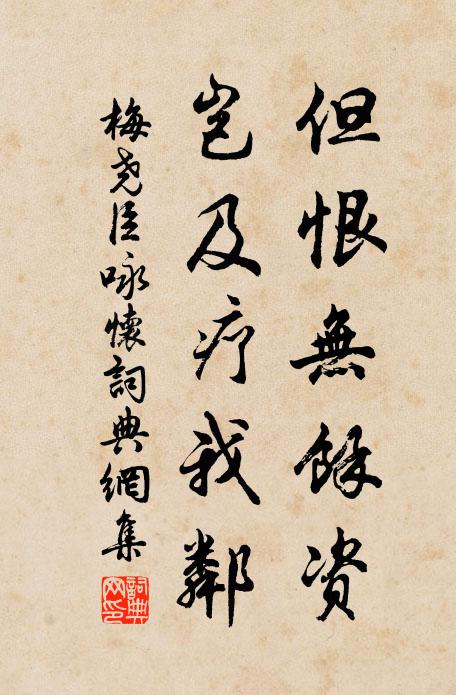 但恨無餘資
豈及疗我鄰
梅尧臣咏懷詞典網集
詞典
网印